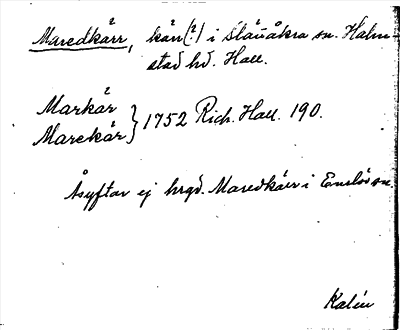 Maredkårr, kärr (?) i Slättåkra sn. Halm-
stad hd. Hall.
Markår
Marekår } 1752 Rich. Hall. 190.
Åsyftar ej hrgd. Maredkärr i Enslöv sn.
Kalén